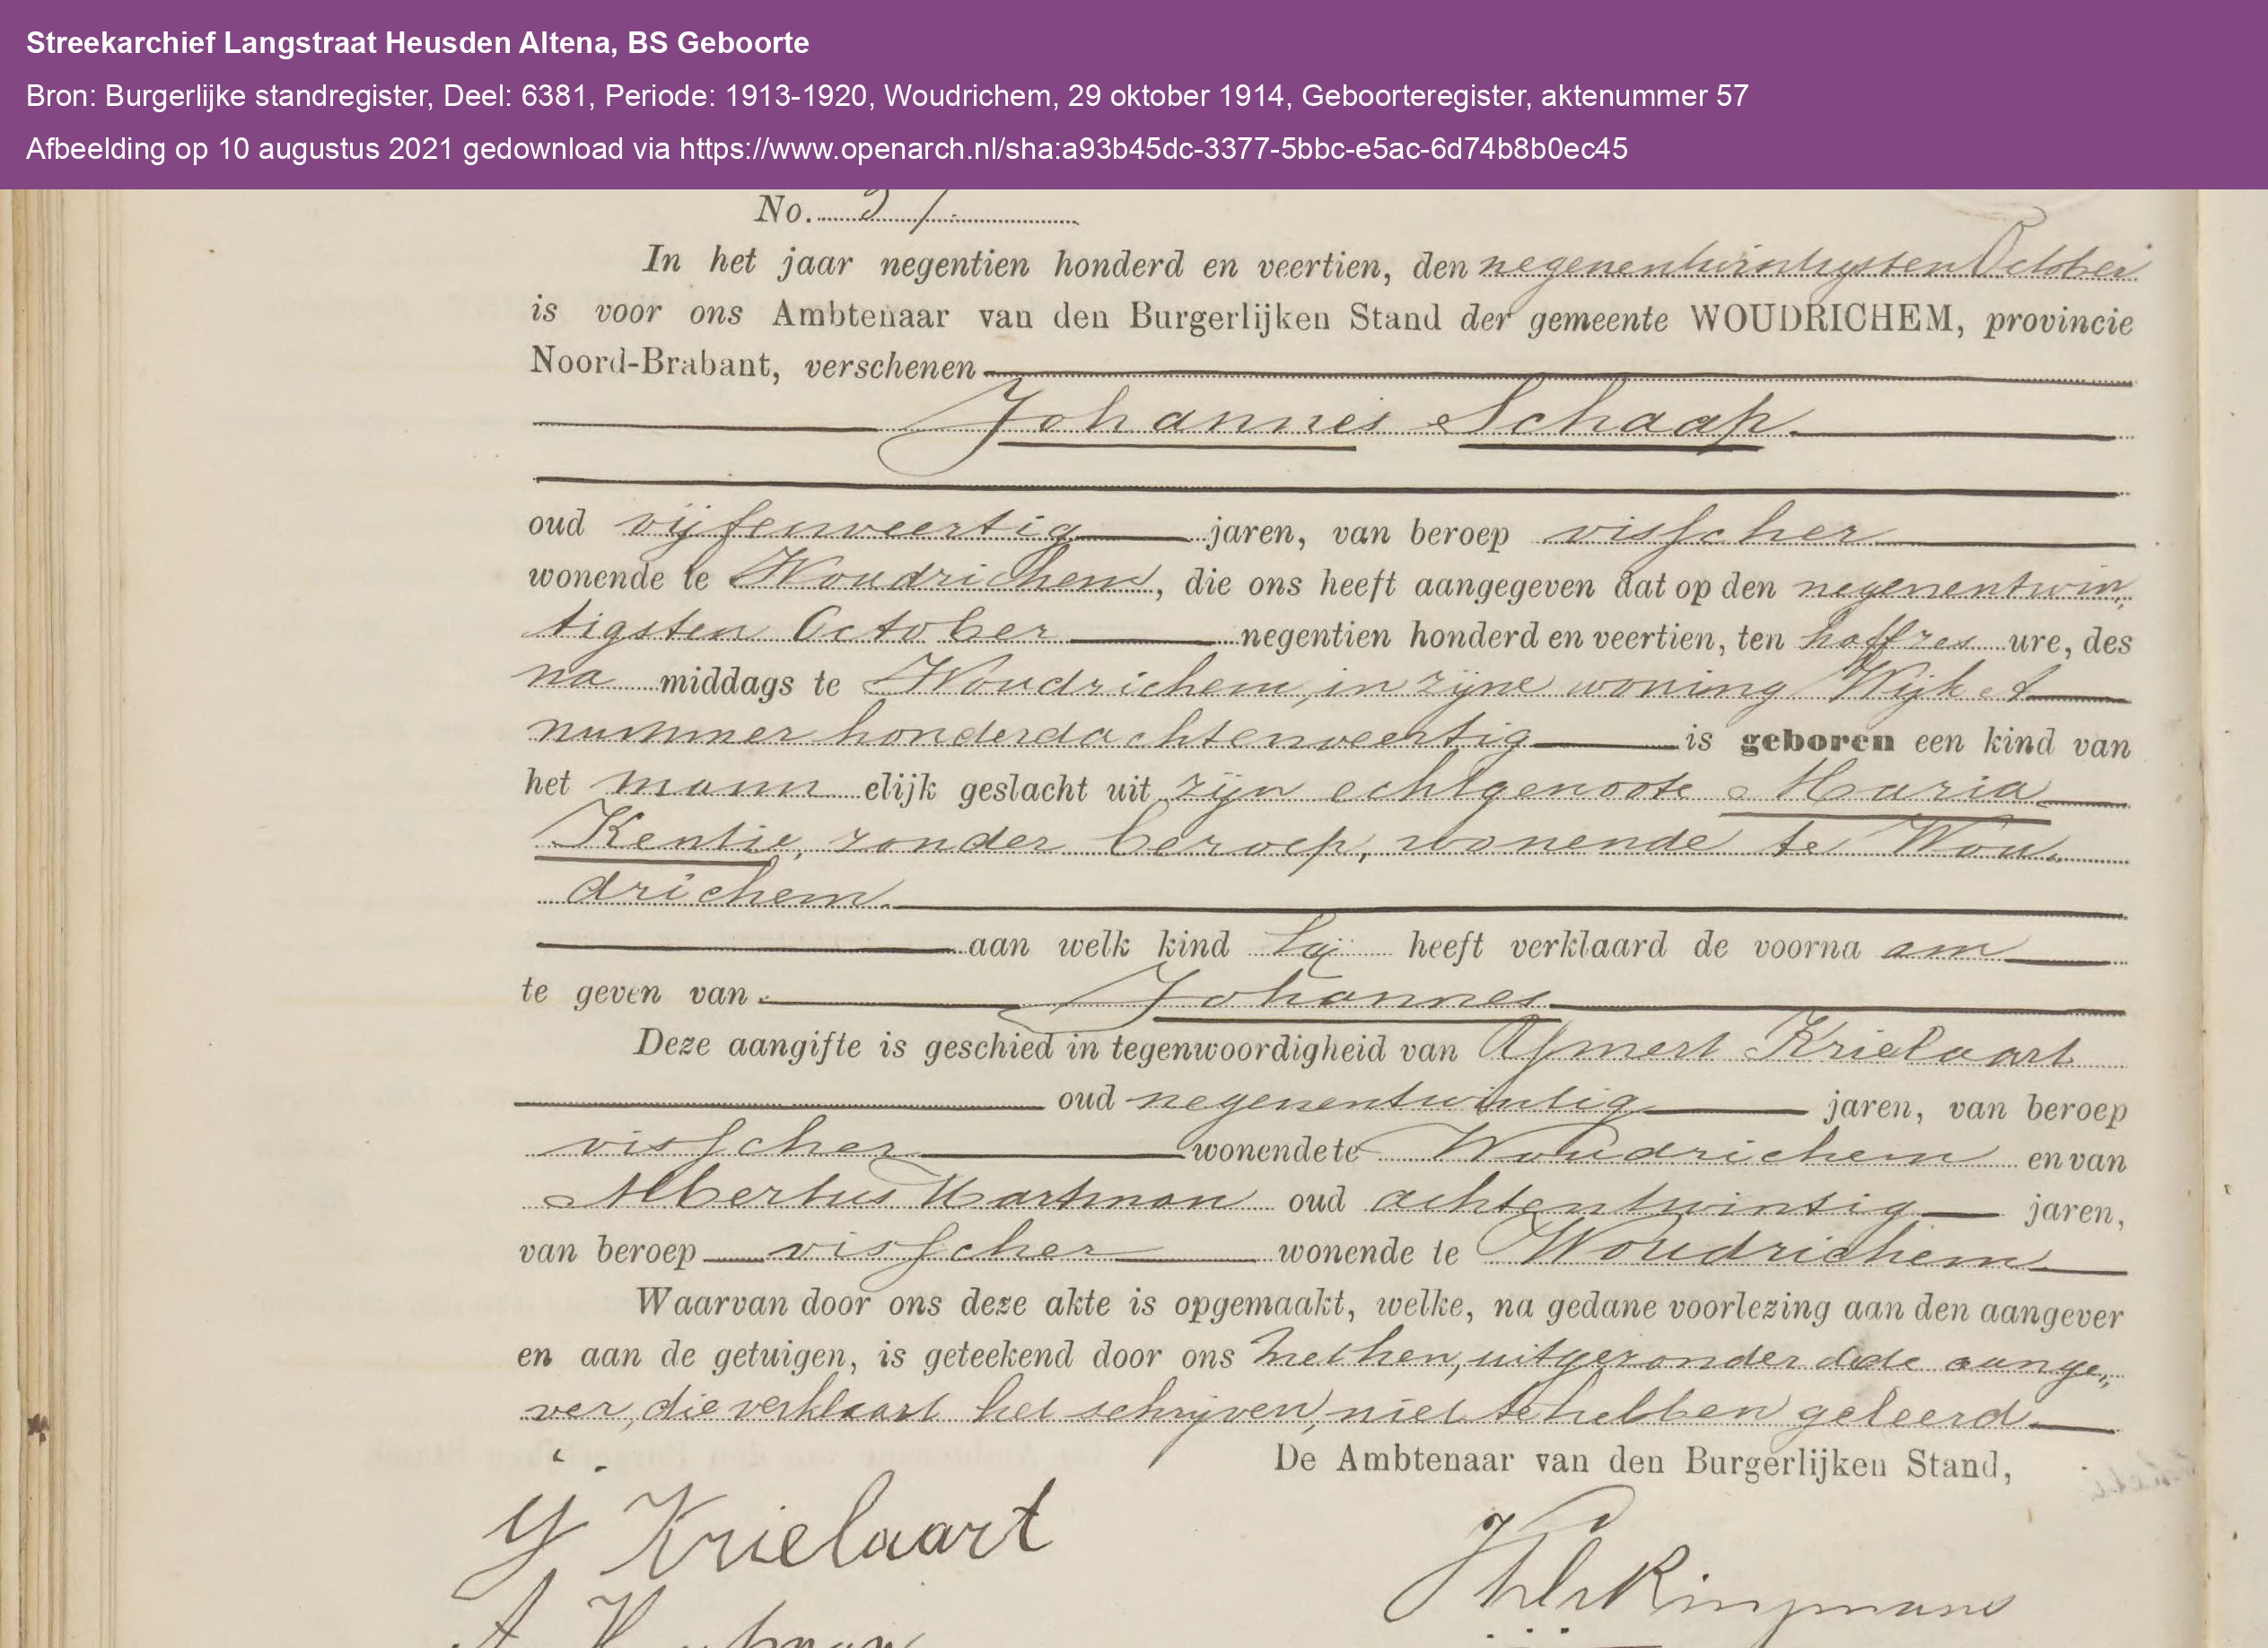 Streekarchief Langstraat Heusden Altena, BS Geboorte
Bron: Burgerlijke standregister, Deel: 6381, Periode: 1913-1920, Woudrichem, 29 oktober 1914, Geboorteregister, aktenummer 57
Afbeelding op 10 augustus 2021 gedownload via https://www.openarch.nl/sha:a93b45dc-3377-5bbc-e5ac-6d74b8b0ec45
No. 57.
In het jaar negentien honderd en veertien, den negenentwintigsten October
is voor ons Ambtenaar van den Burgerlijken Stand der gemeente WOUDRICHEM, provincie
Noord-Brabant, verschenen
Johannes Schaap.
oud vijfenveertig jaren, van beroep visscher
wonende te Woudrichem, die ons heeft aangegeven dat op den negenentwin„
tigsten October negentien honderd en veertien, ten half zes ure, des
na middags te Woudrichem, in zijne woning Wijk A
nummer honderdachtenveertig is geboren een kind van
het mann elijk geslacht uit zijn echtgenoote Maria
Kentie, zonder beroep, wonende te Wou„
drichem.
aan welk kind hij heeft verklaard de voorna am
te geven van Johannes
Deze aangifte is geschied in tegenwoordigheid van IJsmert Krielaart
oud negenentwintig jaren, van beroep
visscher wonende te Woudrichem en van
Albertus Hartman oud achtentwintig jaren,
van beroep visscher wonende te Woudrichem
Waarvan door ons deze akte is opgemaakt, welke, na gedane voorlezing aan den aangever
en aan de getuigen, is geteekend door ons met hen, uitgezonderd de aange„
ver, die verklaart het schrijven niet te hebben geleerd
De Ambtenaar van den Burgerlijken Stand,
IJ Krielaart